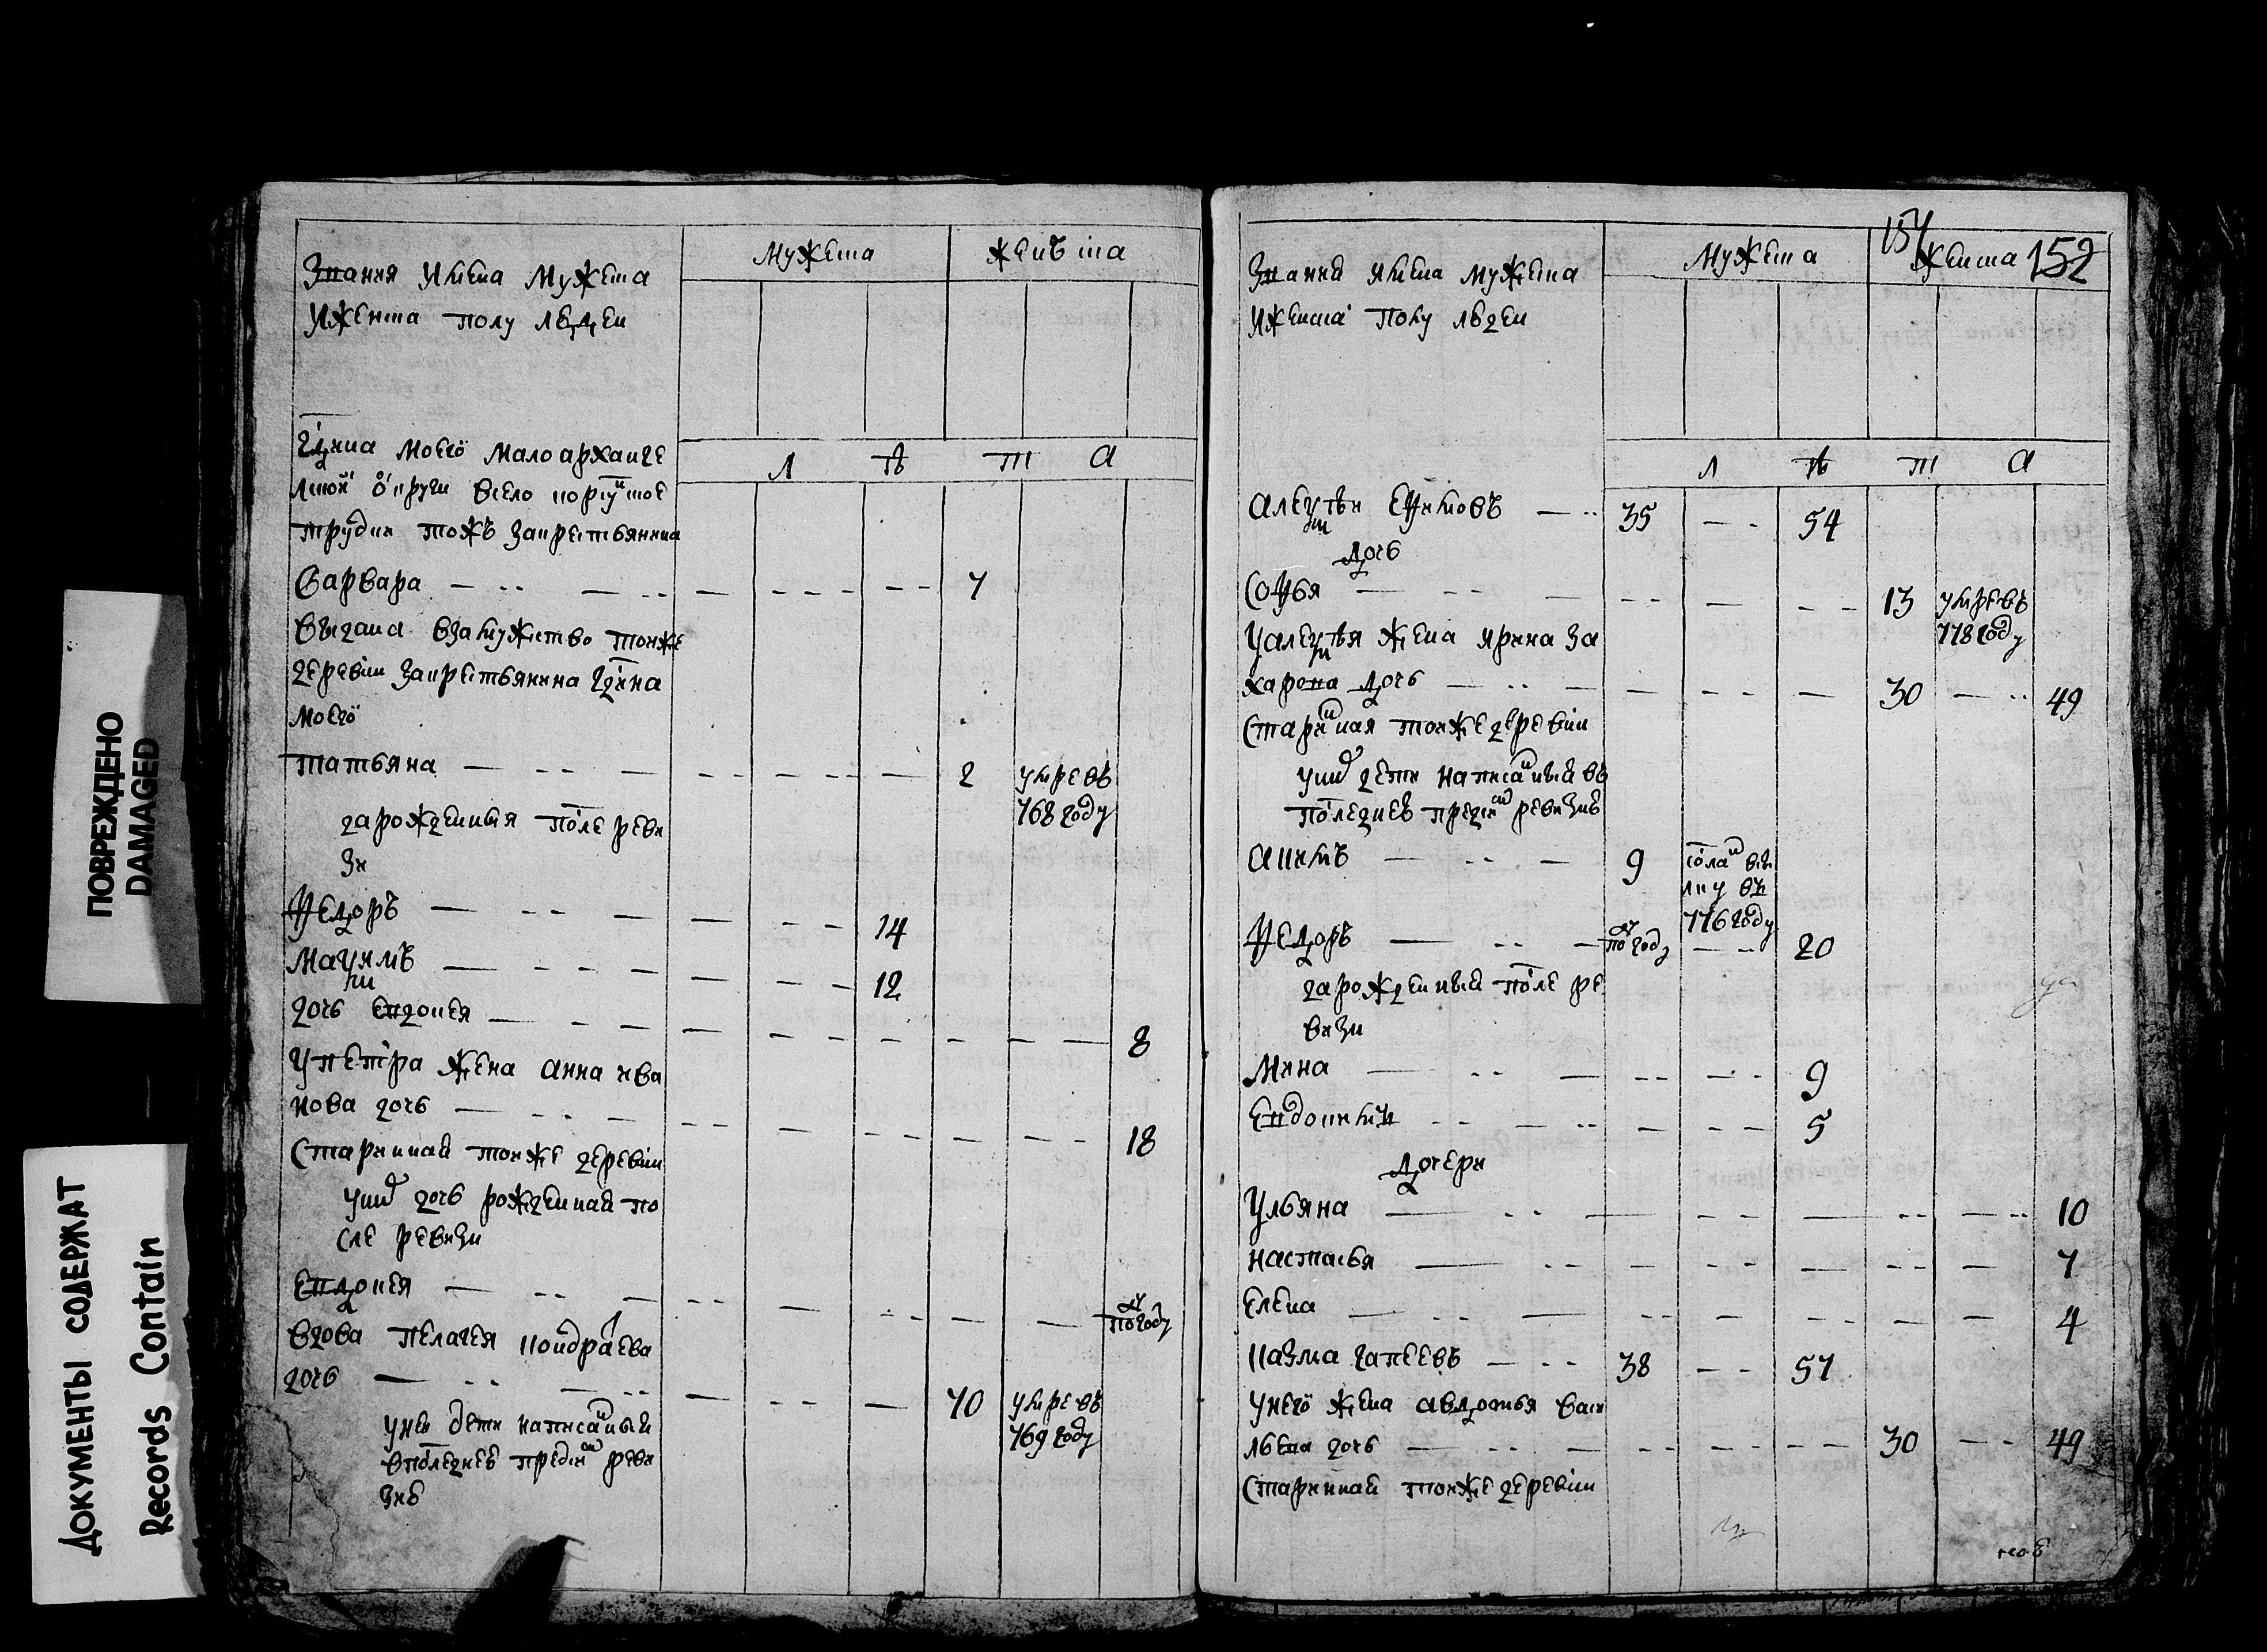 ПОВРЕЖДЕНО
DAMAGED
ДОКУМЕНТЫ СОДЕРЖАТ
Records Contain
Звания имена мужеска
и женска полу людей
мужеска
женъска
л ѣ т а
гдна моего малоархане
лской округи всело
трудки тожъ за крестьянина
Варвара — 7
выдана взамужство тойже
деревни за крестьянина гдина
моего
Татьяна — 2 умре въ
768 году
зарожденныя после реви
зи
Федоръ — 14
Мазимъ — 12
дочь Евдокея — 8
у Петра жена Анна Ива
нова дочь — 18
старинная тойже деревни
у них дочь рожденная по
сле ревизи
Евдокея — полгоду
вдова Пелагея Кондратева
дочь — 70 умре въ
769 году
у ней дети написанныя
в последней пред сим реви
зие
154
152
Звания имена мужеска
и женска полу людей
мужеска
женска
л ѣ т а
Алексѣй Ефимовъ — 35 — 54
дочь
Софья — 13 умре въ
778 году
у Алексѣя жена Ярина За
харова дочь — 30 — 49
старинная тойже деревни
у них дети написанныя въ
последнеѣ пред сим ревизиѣ
Акимъ — 9
776 году
Федоръ — полгоду — 20
зарожденныя после ре
визи
Мина — 9
Евдокимъ — 5
дочери
Ульяна — 10
Настасья — 7
Елена — 4
Казма — 38 — 57
у него жена Авдотья Васи
льева дочь — 30 — 49
старинная тойже деревни